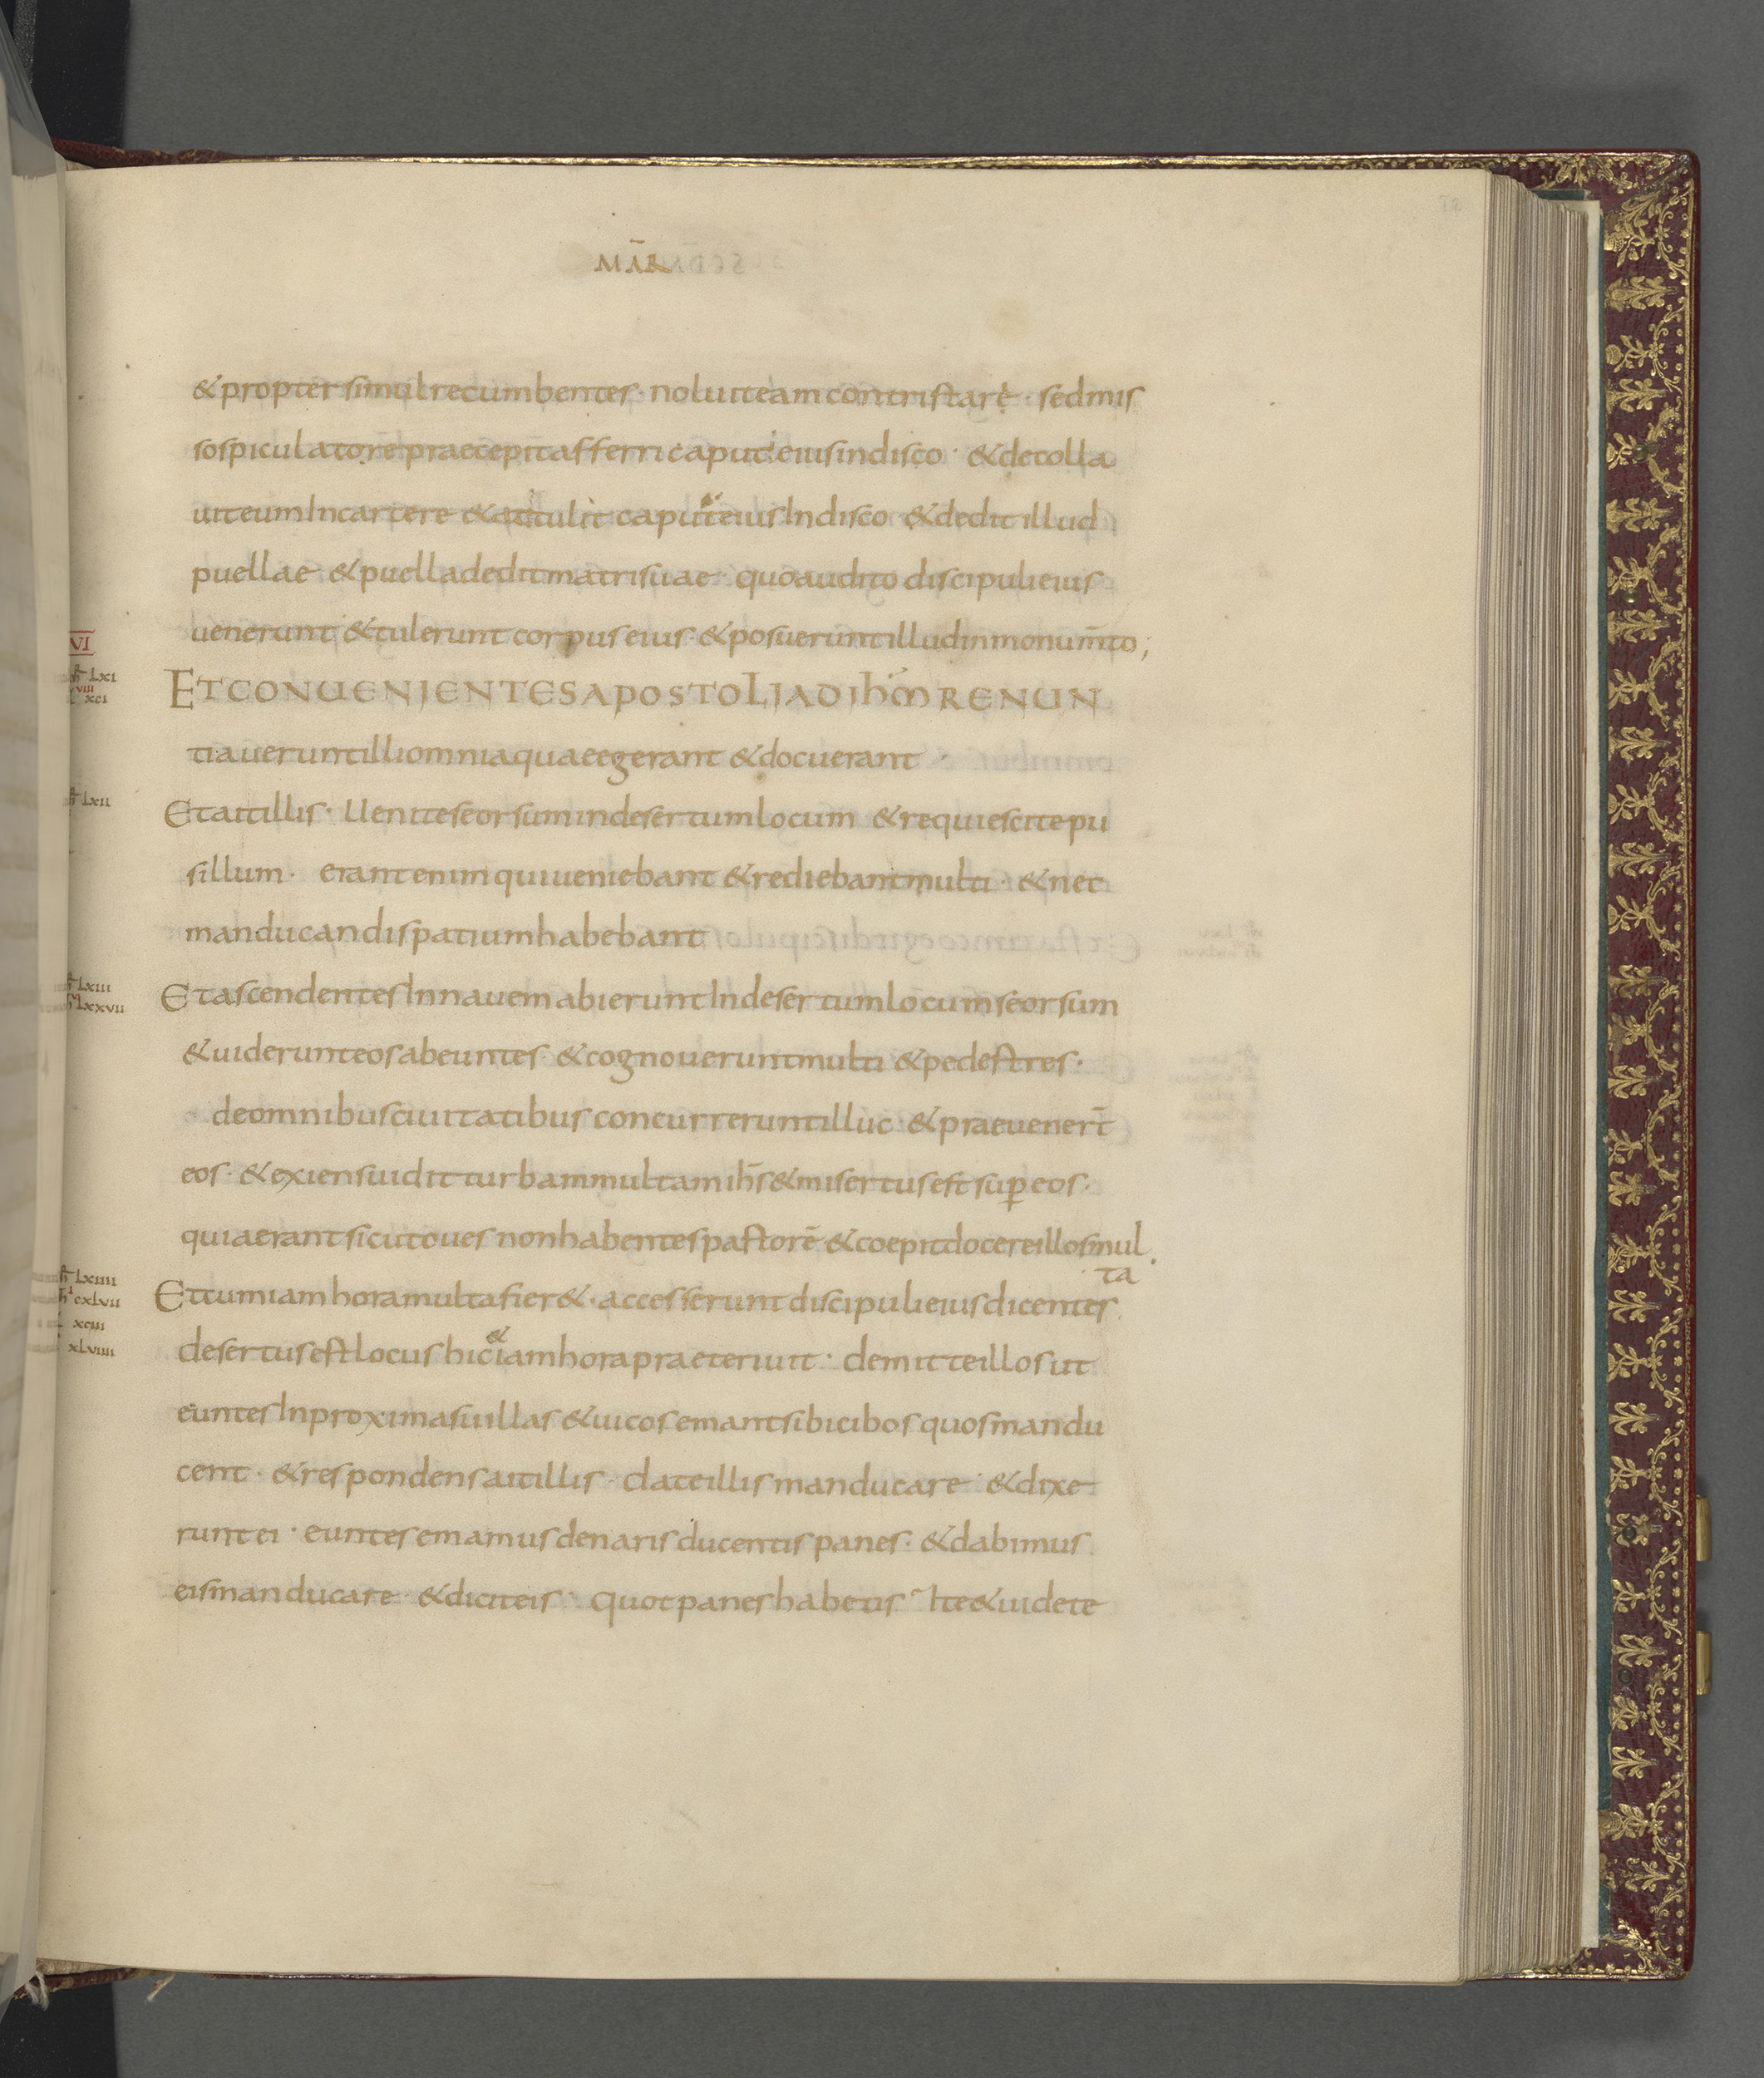 MAR̄
& propter simul recumbentes · noluit eam contristare · sed mis
so spiculatore praecepit afferri caput eius in disco · & decolla
uit eum In carcere & attulit caput eius In disco & dedit illud
puellae & puella dedit matri suae · quo audito discipuli eius
uenerunt & tulerunt corpus eius · & posuerunt illud in monum̄to;
VI
LXI
VIII
XCI
ET CONUENIENTES APOSTOLI AD IHM̄ RENUN
tiauerunt illi omnia quae egerant & docuerant
LXII
Et ait illis · Uenite seorsum in desertum locum & requiescite pu
sillum · erant enim qui ueniebant & rediebant multi · & nec
manducandi spatium habebant
LXIII
LXXVII
Et ascendentes In nauem abierunt In desertum locum seorsum
& uiderunt eos abeuntes · & cognouerunt multi & pedestres ·
de omnibus ciuitatibus concurrerunt illuc · & praeuener̄t
eos · & exiens uidit turbam multam ih̄s & misertus est sup̱ eos ·
quia erant sicut oues non habentes pastorē & coepit docere illos mul
ta ·
LXIIII
CXLVII
XCIII
XLVIIII
Et cum iam hora multa fier& · accesserunt discipuli eius dicentes
&
desertus est locus hic iam hora praeteriuit · demitte illos ut
euntes In proximas uillas & uicos emant sibi cibos quos mandu
cent · & respondens ait illis · date illis manducare · & dixe
runt ei · euntes emamus denaris ducentis panes · & dabimus
eis manducare · & dicit eis · Quot panes habetis Ite & uidete